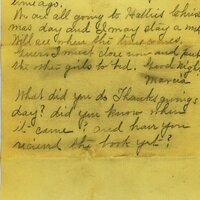 time ago.
We are all going to Hattie's Christ
mas day and I may stay a
Will
return I must close and put
the other girls to bed. Good night
Marcia
What did you do Thanksgiving
day? did you know when
it came? and have you
recieved the book yet?